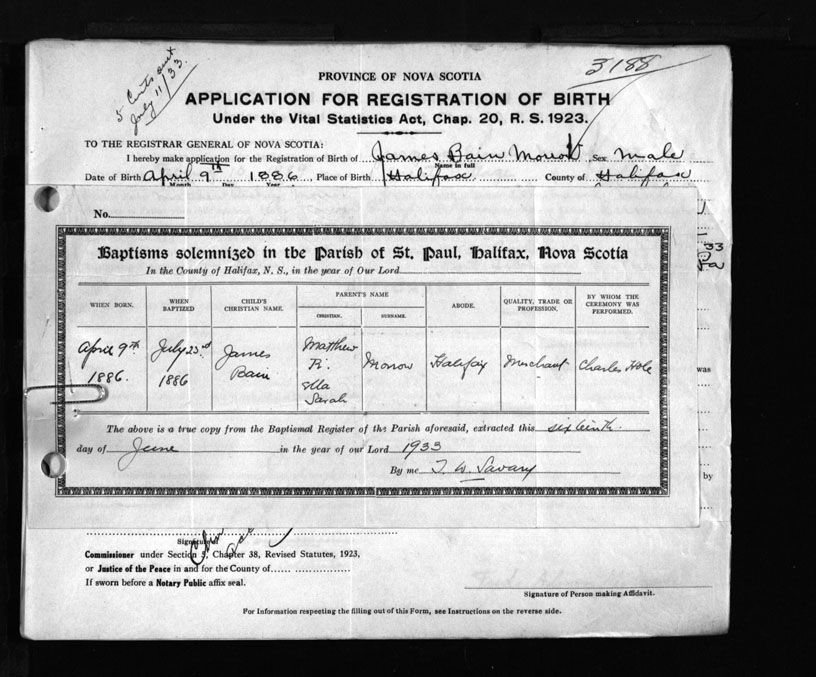 5 Certs sent
July 11/33.
3188
PROVINCE OF NOVA SCOTIA
APPLICATION FOR REGISTRATION OF BIRTH
Under the Vital Statistics Act, Chap. 20, R. S. 1923.
TO THE REGISTRAR GENERAL OF NOVA SCOTIA:
I hereby make application for the Registration of Birth of James Bain Morrow Sex male
Name in full
Date of Birth April 9th 1886 , Place of Birth Halifax County of Halifax
Month Day Year
No.
33
Baptisms solemnized in the Parish of St. Paul, Halifax, Nova Scotia
In the County of Halifax, N. S., in the year of Our Lord
WHEN BORN. WHEN BAPTIZED CHILD'S CHRISTIAN NAME. PARENT'S NAME CHRISTIAN. SURNAME. ABODE. QUALITY, TRADE OR PROFESSION. BY WHOM THE CEREMONY WAS PERFORMED.
April 9th 1886. July 23rd 1886 James Bain Matthew R. Ella Sarah Morrow Halifax Merchant Charles Hole
was
The above is a true copy from the Baptismal Register of the Parish aforesaid, extracted this sixteenth
day of June in the year of our Lord 1933
By me T. W. Savary
by
Signature
Commissioner under Section 5, Chapter 38, Revised Statutes, 1923,
or Justice of the Peace in and for the County of
If sworn before a Notary Public affix seal.
Signature of Person making Affidavit.
For Information respecting the filling out of this Form, see Instructions on the reverse side.